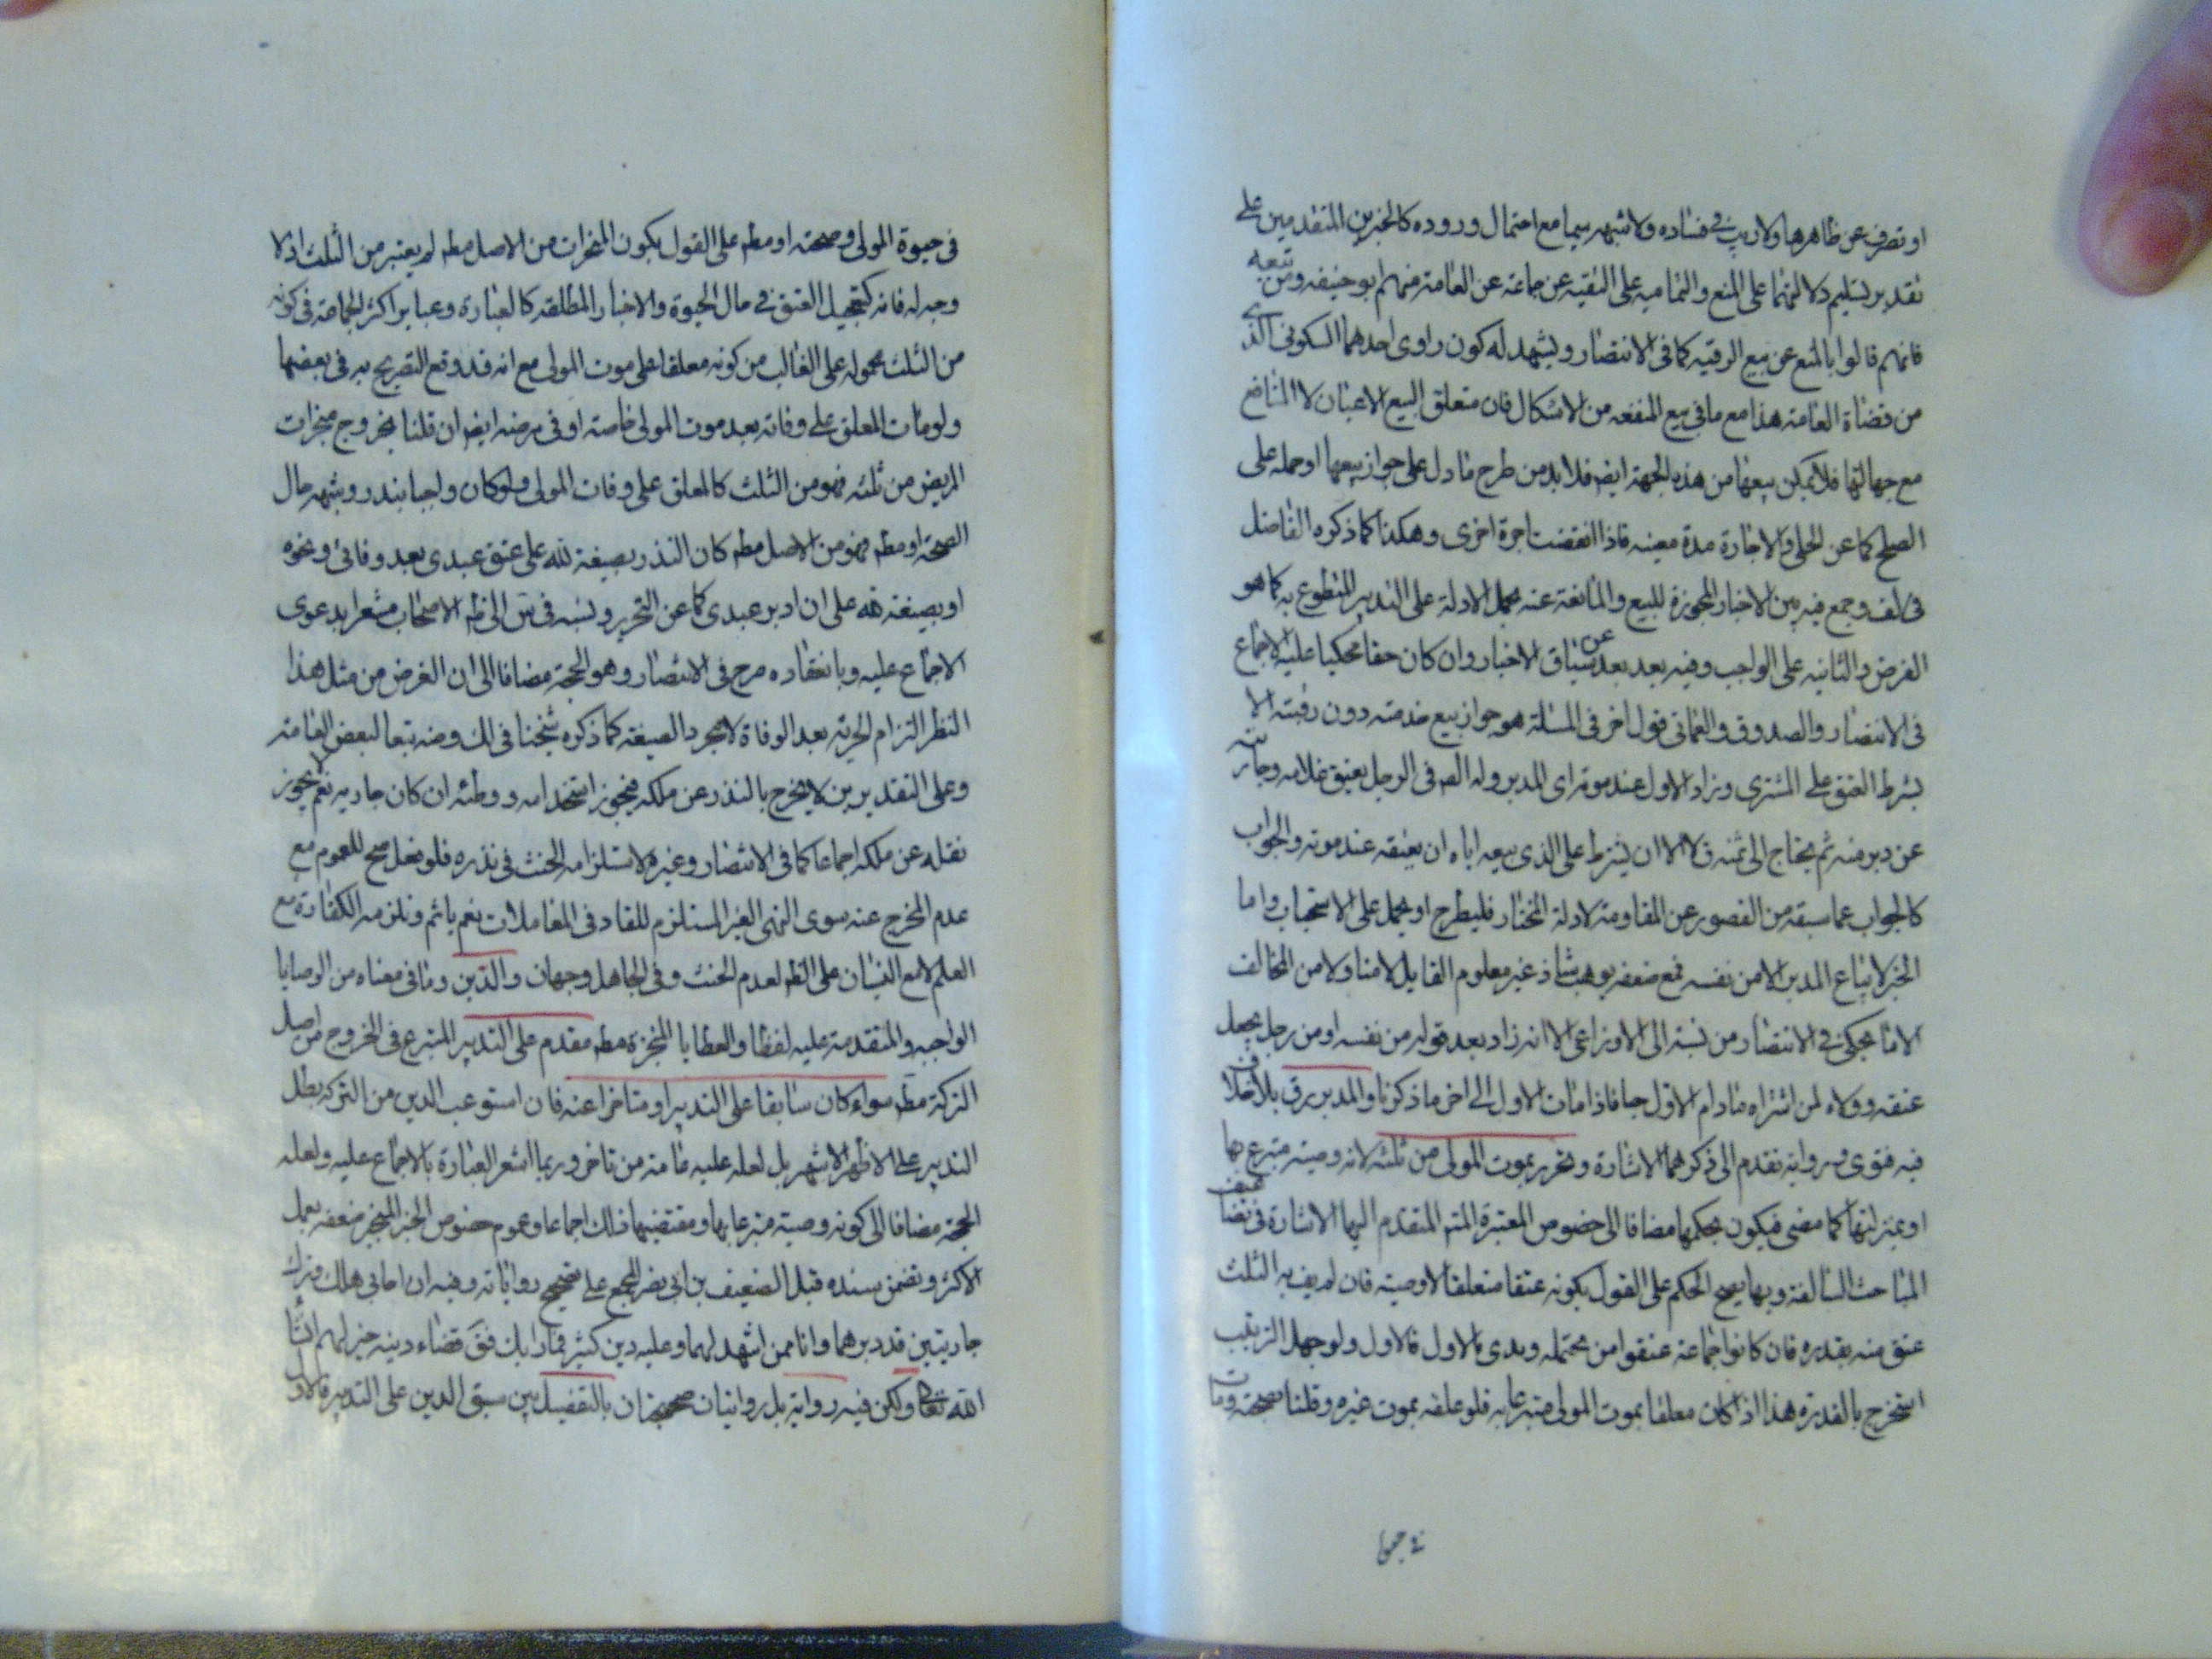 او تصرف عن ظاهرها ولا ريب في فساده ولا شبهه سيما مع احتمال وروده كالخبرين المتقدمين على
تقدير تسليم دلالتهما على المنع والتماميه على التقيه عن جماعة عن العامة منهم ابو حنيفه ومن تبعه
فانهم قالوا بالمنع عن بيع الرقبه كما فى الانتصار ويشهد له كون راوى احدهما السكونى الذى
من قضاة العامة هذا مع ما فى بيع المنفعه من الاشكال فان متعلق البيع الاعيان لا المنافع
مع جهالتها فلا يمكن بيعها من هذه الجهة ايضا فلا بد من طرح ما دل على جواز بيعها او حمله على
الصلح كما عن الحلى والاجارة مدة معينه فاذا انقضت اجرة اخرى وهكذا كما ذكره الفاضل
فى لف وجمع فيه بين الاخبار المجوزة للبيع والمانعة عنه بحمل الادلة على التدبير المتطوع به كما هو
الفرض والثانيه على الواجب وفيه بعد بعد عن سياق الاخبار وان كان حقا محكيا عليه الاجماع
فى الانتصار والصدوق والعمانى قول اخر فى المسئلة هو جواز بيع خدمته دون رقبته الا
بشرط العتق على المشترى وزاد الاول عند موته اى المدبر وله الصحيح فى الرجل يعتق غلامه وجاريته
عن دبر منه ثم يحتاج الى ثمنه قال لا الا ان يشترط على الذى يبيعه اياه ان يعتقه عند موته والجواب
كالجواب عما سبقه من القصور عن المقاومة لادلة المختار فليطرح او يحمل على الاستحباب واما
الخبر لا يباع المدبر الا من نفسه فمع ضعفه بوهب شاذ غير معلوم القايل لا منا ولا من المخالف
الا ما يحكى في الانتصار من نسبته الى الاوزاعى الا انه زاد بعد قوله من نفسه او من رجل يعجل
عتقه وولاه لمن اشتراه مادام الاول حيا فاذا مات الاول الى اخر ما ذكرنا والمدبر رق بلا خلاف
فيه فتوى ورواية تقدم الى ذكرهما الاشارة ويتحرر بموت المولى من ثلثه لانه وصيته متبرع بها
او بمنزلتها كما مضى فيكون بحكمها مضافا الى خصوص المعتبرة المتقدم اليها الاشارة فى تضاعيف
المباحث السالفة وبها يصح الحكم على القول بكونه عتقا متعلقا لا وصيته فان لم يف به الثلث
عتق منه بقدره فان كانوا جماعة عتقوا من محتمله وبدى بالاول فالاول ولو جهل الترتيب
استخرج بالقرعة هذا اذا كان معلقا بموت المولى متبرعا به فلو علقه بموت غيره وقلنا بصحته ومات
فى حيوة
فى حيوة المولى وصحته او مطم على القول بكون المنجزات من الاصل مطم لم يعتبر من الثلث اذ لا
وجه له فانه كتعجيل العتق في حال الحيوة والاخبار المطلقه كالعبارة وعباير اكثر الجماعة فى كونه
من الثلث محموله على الغالب من كونه معلقا على موت المولى مع انه قد وقع التصريح به فى بعضها
ولو مات المعلق على وفاته بعد موت المولى خاصته او فى مرضه ايضا ان قلنا بخروج منجزات
المريض من ثلثه فهو من الثلث كالمعلق على وفات المولى ولو كان واجبا بنذر وشبهه حال
الصحة او مطم فهو من الاصل مطم كان النذر بصيغة لله على عتق عبدى بعد وفاتى ونحوه
او بصيغة لله على ان ادبر عبدى كما عن التحرير ونسبه فى س الى ظم الاصحاب مشعرا بدعوى
الاجماع عليه وبانعقاده صرح فى الانتصار وهو الحجة مضافا الى ان الغرض من مثل هذا
النظر التزام الحرية بعد الوفاة لا مجرد الصيغة كما ذكره شيخنا فى لك وضه تبعا لبعض العامة
وعلى التقديرين لا يخرج بالنذر عن ملكه فيجوز استخدامه ووطئه ان كان جاريه نعم لا يجوز
نقله عن ملكه اجماعا كما فى الانتصار وغيره لاستلزامه الحنث فى نذره فلو فعل صح للعموم مع
عدم المخرج عنه سوى النهى الغير المستلزم للفساد فى المعاملات نعم ياثم وتلزمه الكفارة مع
العلم لا مع النسيان على الظم لعدم الحنث وفى الجاهل وجهان والدين وما فى معناه من الوصايا
الواجبه والمتقدمة عليه لفظا والعطايا المنجزة مطم مقدم على التدبير المتبرع فى الخروج من اصل
التركة مطم سواء كان سابقا على التدبير او متاخرا عنه فان استوعب الدين من التركه بطل
التدبير على الاظهر الاشهر بل لعله عليه عامة من تاخر وربما اشعر العبارة بالاجماع عليه ولعله
الحجة مضافا الى كونه وصيته متبرعا بها ومقتضيها ذلك اجماعا وعموم خصوص الخبر المنجبر ضعفه بعمل
الاكثر وتضمن سنده قبل الضعيف بن ابى نصر المجمع على تصحيح رواياته وفيه ان ابى هلك وترك
جاريتين قد دبرهما وانا ممن اشهد لهما وعليه دين كثير فما رايك فق قضاء دينه خير لهم انشا
الله تعالى ولكن فيه رواية بل روايتان صحيحتان بالتفصيل بين سبق الدين على التدبير فالاول